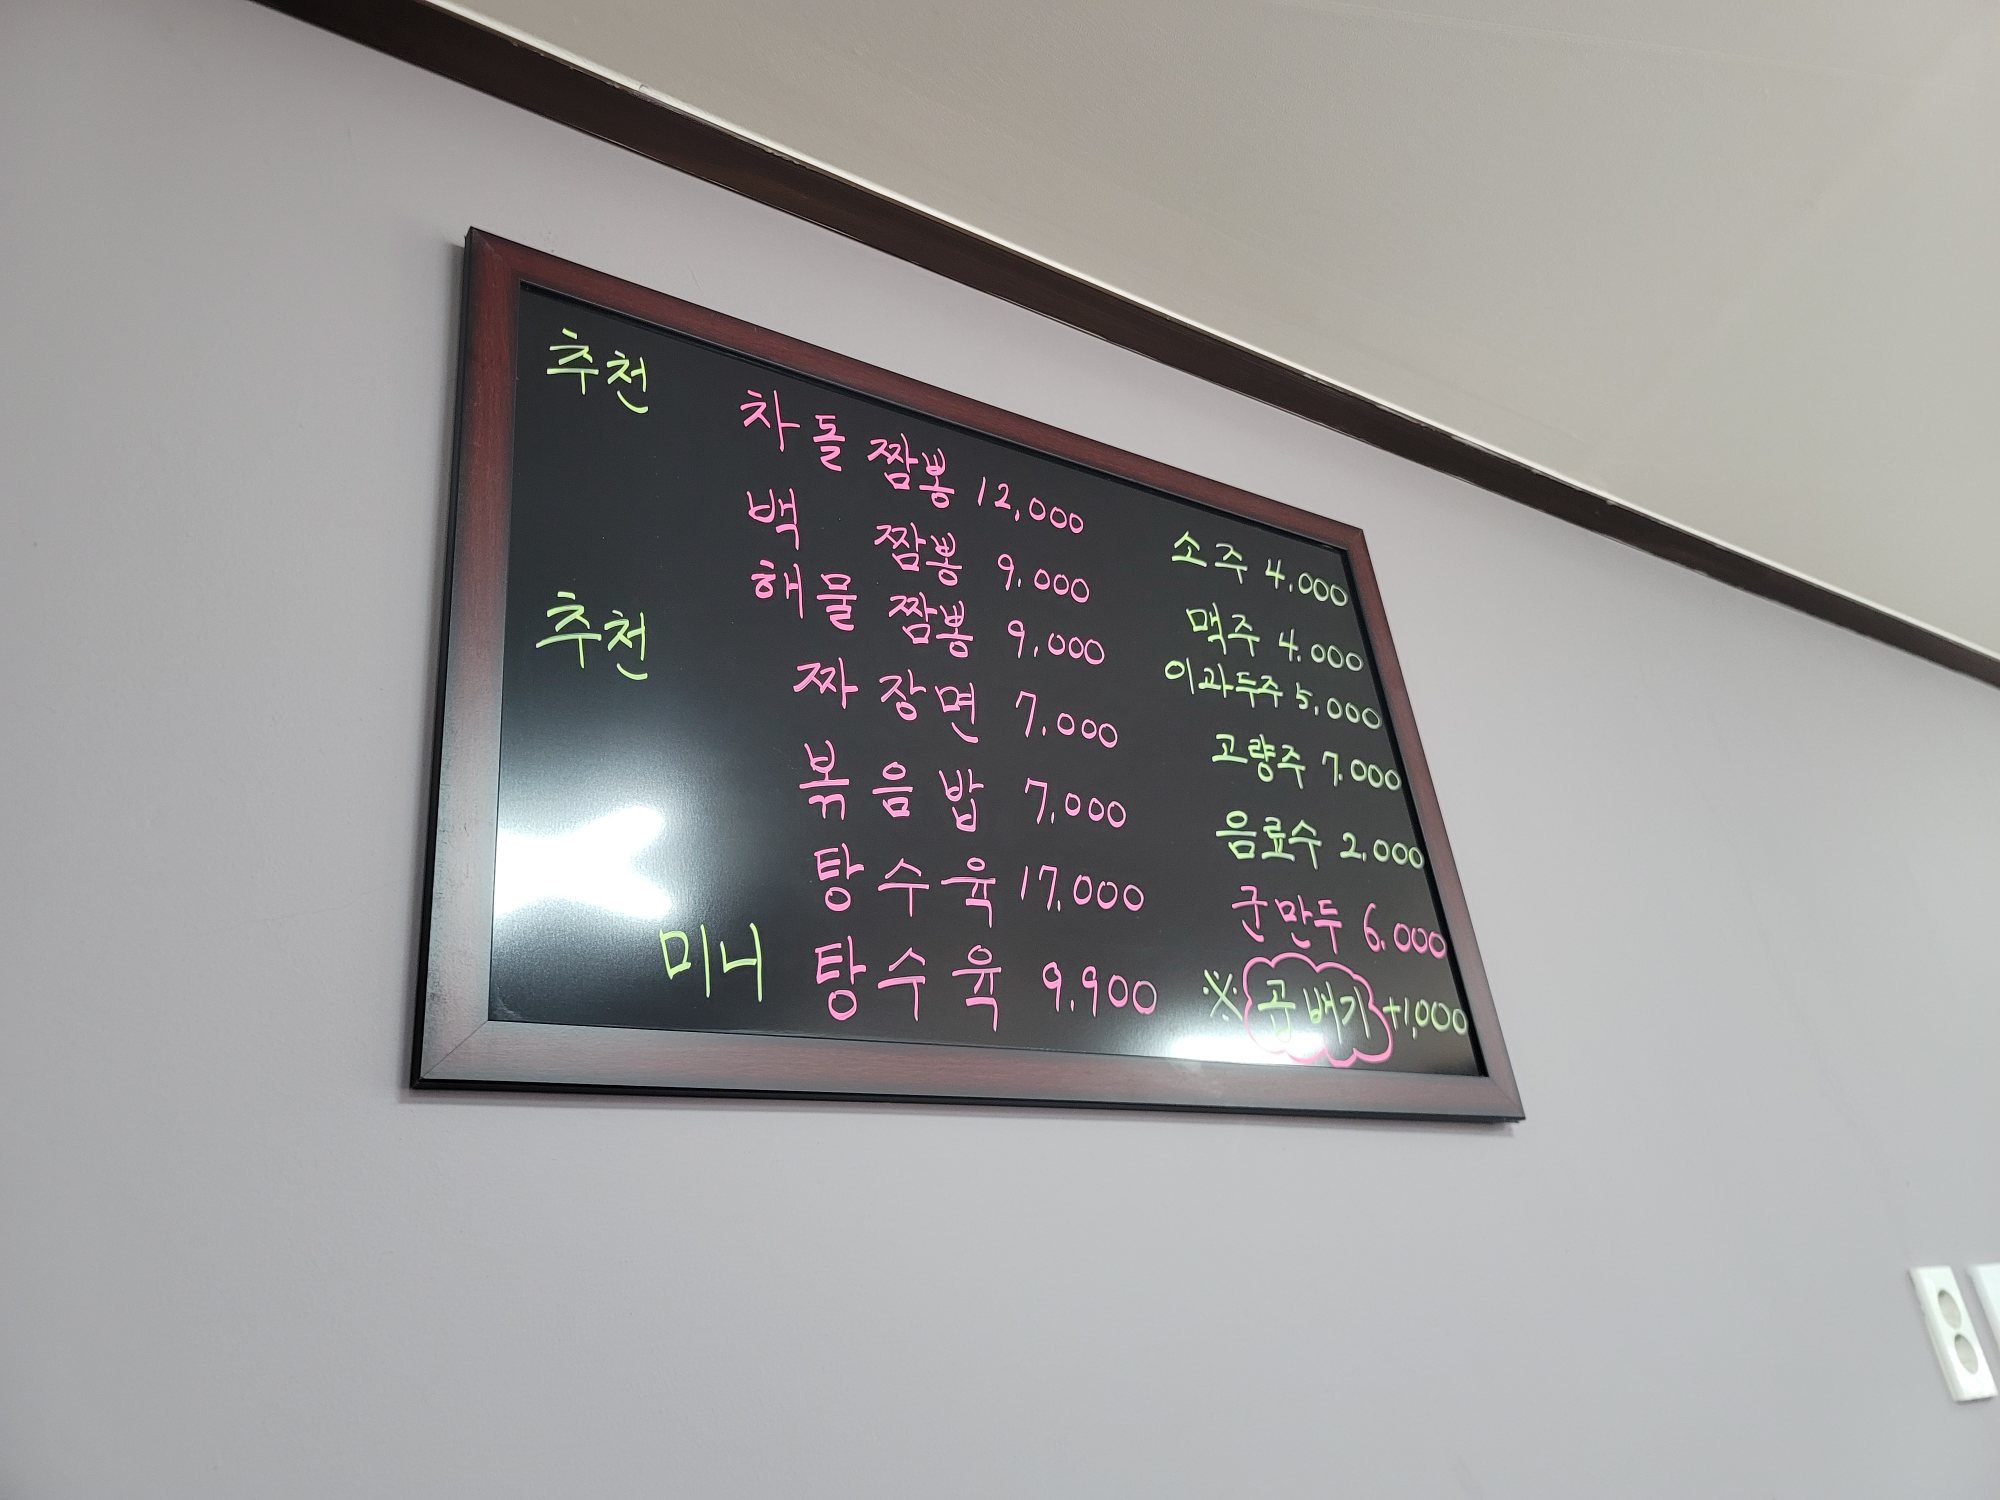 추천 차돌 짬뽕 12,000
백 짬뽕 9,000
추천 해물 짬뽕 9,000
짜장면 7,000
볶음밥 7,000
탕수육 17,000
미니 탕수육 9,900
소주 4,000
맥주 4,000
이과두주 5,000
고량주 7,000
음료수 2,000
군만두 6,000
※ 곱배기 +1,000